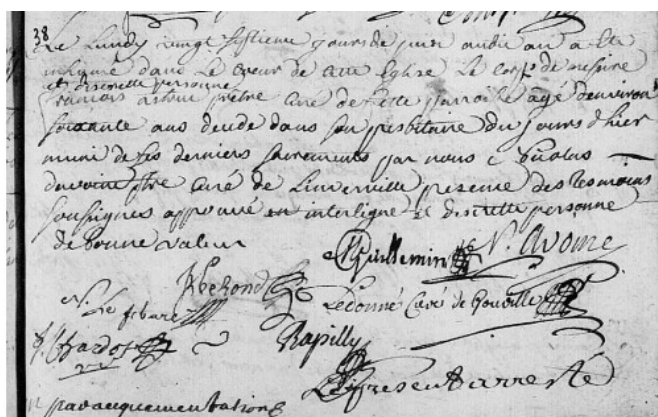 38
Le Lundy vingt septieme jours de juin audit an a été
inhumé dans Le Coeur de cette Eglise Le corps de messire
et discrette personne
françois prêtre Curé de cette parroisse agé denviron
soixante ans decedé dans son presbitaire du jours d'hier
muni de ses derniers sacrements par nous Nicolas
davoine ptre curé de Limerville presence des tesmoins
soussignes approuvé en interligne et discrette personne
de bonne valeur
Guillemin N. Avoine
Le donné Curé de Rouville
N. Le febvre
Rapilly
Le present arresté